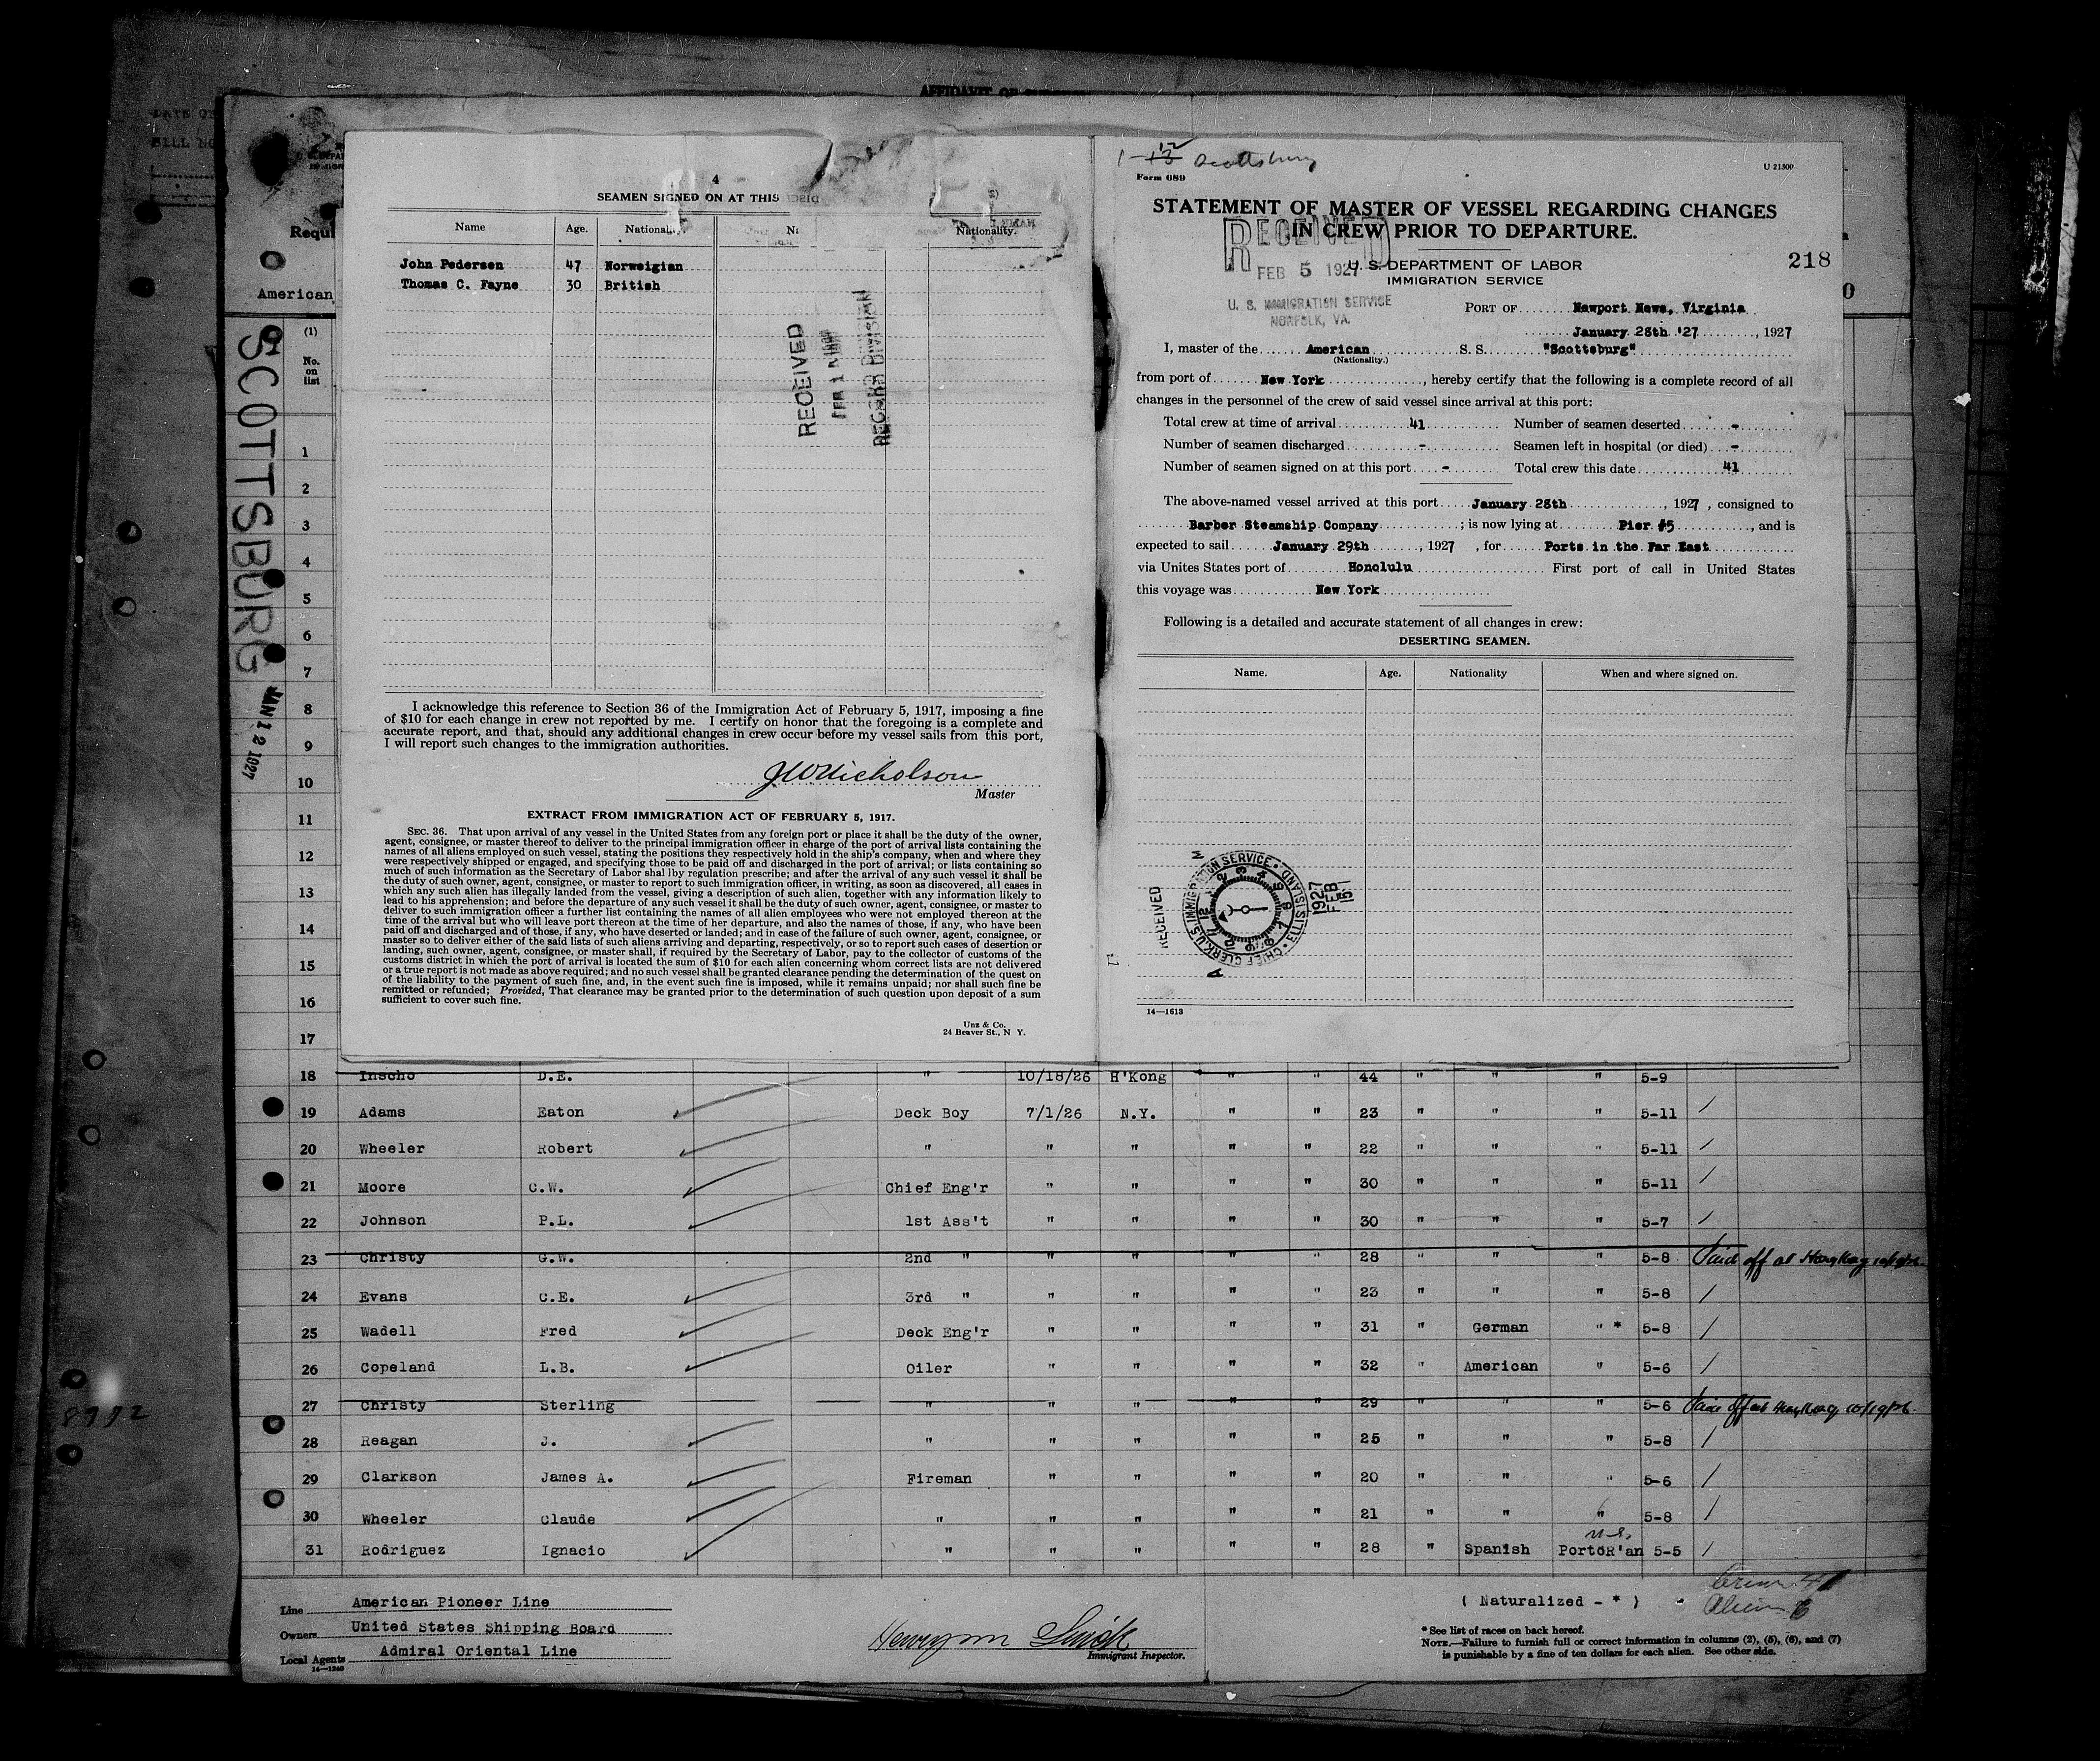 AFFIDAVIT OF
Requi
American
SCOTTSBURG
JAN 12 1927
(1)
No.
on
list
1
2
3
4
5
6
7
8
9
10
11
12
13
14
15
16
17
4
SEAMEN SIGNED ON AT THIS
Name Age. Nationality. Nationality.
John Pedersen 47 Norweigian
Thomas C. Fayne 30 British
RECEIVED
RECORD DIVISION
I acknowledge this reference to Section 36 of the Immigration Act of February 5, 1917, imposing a fine
of $10 for each change in crew not reported by me. I certify on honor that the foregoing is a complete and
accurate report, and that, should any additional changes in crew occur before my vessel sails from this port,
I will report such changes to the immigration authorities.
JW Nicholson
Master
EXTRACT FROM IMMIGRATION ACT OF FEBRUARY 5, 1917.
SEC. 36. That upon arrival of any vessel in the United States from any foreign port or place it shall be the duty of the owner,
agent, consignee, or master thereof to deliver to the principal immigration officer in charge of the port of arrival lists containing the
names of all aliens employed on such vessel, stating the positions they respectively hold in the ship's company, when and where they
were respectively shipped or engaged, and specifying those to be paid off and discharged in the port of arrival; or lists containing so
much of such information as the Secretary of Labor shal lby regulation prescribe; and after the arrival of any such vessel it shall be
the duty of such owner, agent, consignee, or master to report to such immigration officer, in writing, as soon as discovered, all cases in
which any such alien has illegally landed from the vessel, giving a description of such alien, together with any information likely to
lead to his apprehension; and before the departure of any such vessel it shall be the duty of such owner, agent, consignee, or master to
deliver to such immigration officer a further list containing the names of all alien employees who were not employed thereon at the
time of the arrival but who will leave port thereon at the time of her departure, and also the names of those, if any, who have been
paid off and discharged and of those, if any, who have deserted or landed; and in case of the failure of such owner, agent, consignee, or
master so to deliver either of the said lists of such aliens arriving and departing, respectively, or so to report such cases of desertion or
landing, such owner, agent, consignee, or master shall, if required by the Secretary of Labor, pay to the collector of customs of the
customs district in which the port of arrival is located the sum of $10 for each alien concerning whom correct lists are not delivered
or a true report is not made as above required; and no such vessel shall be granted clearance pending the determination of the quest on
of the liability to the payment of such fine, and, in the event such fine is imposed, while it remains unpaid; nor shall such fine be
remitted or refunded; Provided, That clearance may be granted prior to the determination of such question upon deposit of a sum
sufficient to cover such fine.
Unz & Co.
24 Beaver St., N Y.
1-12 Scottsburg
U 21300
Form 689
STATEMENT OF MASTER OF VESSEL REGARDING CHANGES
IN CREW PRIOR TO DEPARTURE.
RECEIVED
FEB 5 1927
U. S. IMMIGRATION SERVICE
NORFOLK, VA.
U. S. DEPARTMENT OF LABOR
IMMIGRATION SERVICE
218
PORT OF Newport News, Virginia
January 28th '27, 1927
I, master of the American S. S. "Scottsburg"
(Nationality.)
from port of New York, hereby certify that the following is a complete record of all
changes in the personnel of the crew of said vessel since arrival at this port:
Total crew at time of arrival 41 Number of seamen deserted -
Number of seamen discharged - Seamen left in hospital (or died) -
Number of seamen signed on at this port - Total crew this date 41
The above-named vessel arrived at this port January 28th, 1927, consigned to
Barber Steamship Company; is now lying at Pier #5, and is
expected to sail January 29th, 1927, for Ports in the Far East
via Unites States port of Honolulu First port of call in United States
this voyage was New York
Following is a detailed and accurate statement of all changes in crew:
DESERTING SEAMEN.
Name. Age. Nationality When and where signed on.
RECEIVED
CHIEF CLERK, U.S. IMMIGRATION SERVICE • ELLIS ISLAND
1927
FEB
14—1613
18 Inscho D.E. " 10/18/26 H'Kong " " 44 " " " 5-9
19 Adams Eaton Deck Boy 7/1/26 N.Y. " " 23 " " " 5-11 /
20 Wheeler Robert " " " " " 22 " " " 5-11 /
21 Moore C.W. Chief Eng'r " " " " 30 " " " 5-11 /
22 Johnson P.L. 1st Ass't " " " " 30 " " " 5-7 /
23 Christy G.W. 2nd " " " " " 28 " " " 5-8 Paid off at Hong Kong
24 Evans C.E. 3rd " " " " " 23 " " " 5-8 /
25 Wadell Fred Deck Eng'r " " " " 31 " German " * 5-8 /
26 Copeland L.B. Oiler " " " " 32 " American " 5-6 /
27 Christy Sterling " " " " " 29 " " " 5-6 Paid off at Hong Kong 10/19/26
28 Reagan J. " " " " " 25 " " " 5-8 /
29 Clarkson James A. Fireman " " " " 20 " " " 5-6 /
30 Wheeler Claude " " " " " 21 " " " 5-8 /
31 Rodriguez Ignacio " " " " " 28 " Spanish U.S. PortoR'an 5-5 /
Line American Pioneer Line
Owners United States Shipping Board
Local Agents Admiral Oriental Line
14—1240
Immigrant Inspector.
( Naturalized - * )
Crew 41
Alien
* See list of races on back hereof.
NOTE.—Failure to furnish full or correct information in columns (2), (5), (6), and (7)
is punishable by a fine of ten dollars for each alien. See other side.